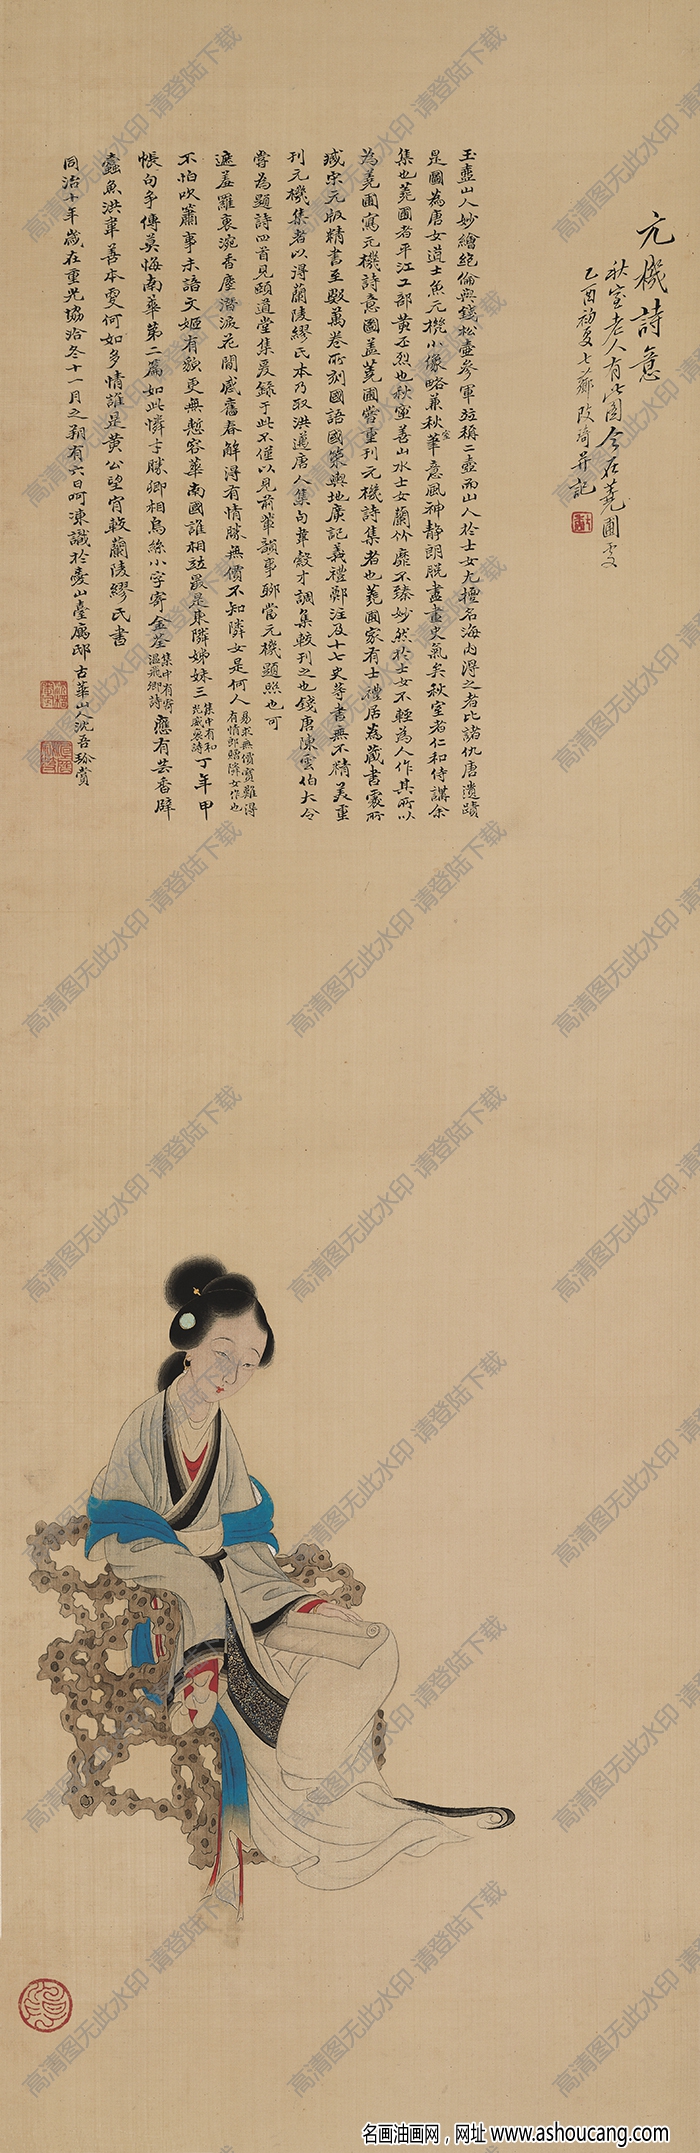 元機詩意
秋室老人有此圖今在蕘圃處
乙酉初夏七薌改琦並記
玉壺山人妙繪絕倫與錢松壺參軍竝稱二壺而山人於士女尤擅名海內得之者比諸仇唐遺蹟
是圖為唐女道士魚元機小像略兼秋室華意風神靜朗脫盡畫史氣矣秋室者仁和侍講余
集也蕘圃者平江工部黃丕烈也秋室善山水士女蘭竹靡不臻妙然於士女不輕為人作其所以
為蕘圃寫元機詩意圖蓋蕘圃嘗重刊元機詩集者也蕘圃家有士禮居為藏書處所
臧宋元版精書至數萬卷所刻國語國策輿地廣記義禮鄭注及十七史等書無不精美重
刊元機集者以得蘭陵繆氏本乃取洪邁唐人集句韋縠才調集較刊之也錢唐陳雲伯大令
嘗為題詩四首見頤道堂集爰錄于此不僅以見前輩韻事聊當元機題照也可
遮羞羅袖裛香塵潛淚花間感舊春解得有情勝無價不知隣女是何人易求無價寶難得有情郎贈隣女作也
不怕吹簫事未諳文姬有貌更無慙容華南國誰相竝最是東隣姊妹三集中有和光威裒詩丁年甲
帳句爭傳莫悔南華第二篇如此憐才勝卿相烏絲小字寄金荃集中有寄溫飛卿詩應有芸香辟
蠹魚洪韋善本更何如多情誰是黃公望肯較蘭陵繆氏書
同治十年歲在重光協洽冬十一月之朔有六日呵凍識於臺山臺廨邸古華山人沈吾珍賞
高清图无此水印 请登陆下载
名画油画网，网址 www.ashoucang.com